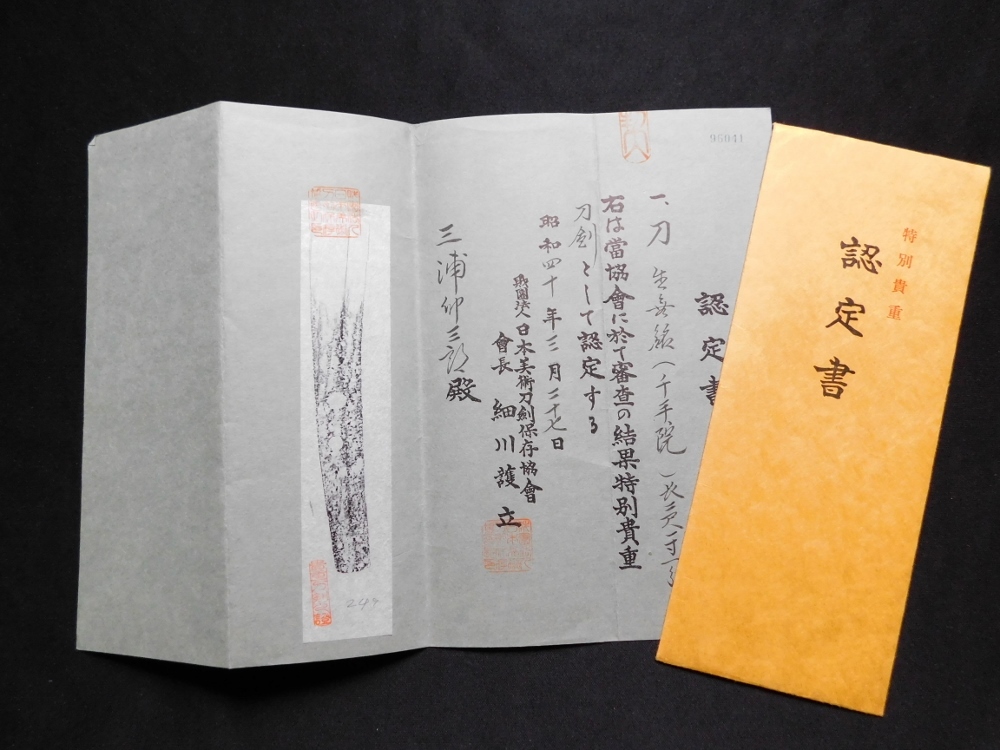 特別貴重
認定書
95941
認定書
一、刀 生無銘(千手院)長
右は當協會に於て審査の結果特別貴重
刀剣として認定する
昭和四十年三月二十七日
財團法人日本美術刀劍保存協會
會長 細川護立
三浦 殿